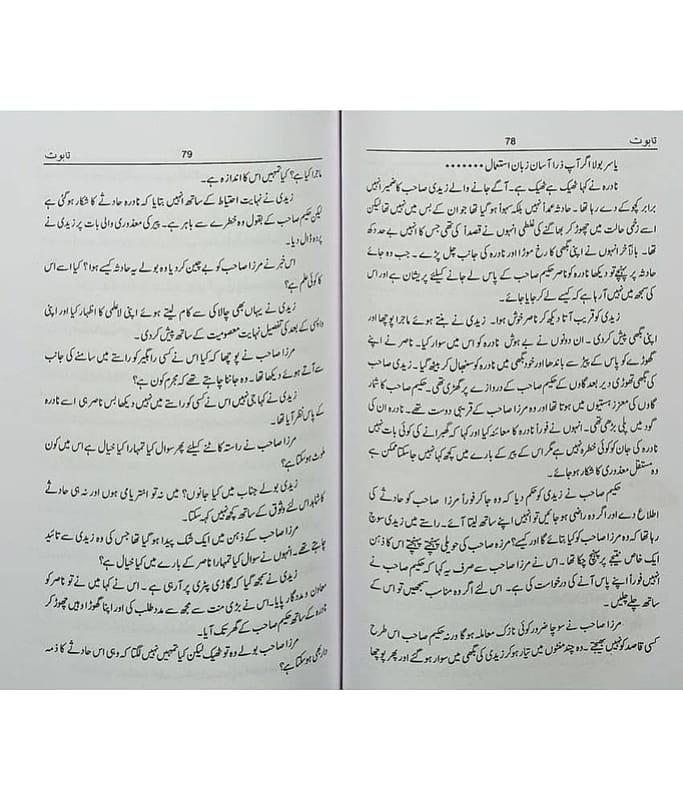 تابوت 78
یاسر بولا اگر آپ ذرا آسان زبان استعمال ۰۰۰۰۰۰۰
نادرہ نے کہا ٹھیک ہے ٹھیک ہے۔ آگے جانے والے زیدی صاحب کا ضمیر انہیں
برابر کچوکے دے رہا تھا۔ حادثہ عمداً نہیں بلکہ سہواً ہو گیا تھا جو ان کے بس میں نہیں تھا لیکن
اسے زخمی حالت میں چھوڑ کر بھاگنے کی غلطی انہوں نے قصداً کی تھی جس کا انہیں بے حد دکھ
تھا۔ بالآخر انہوں نے اپنی بگھی کا رخ موڑا اور نادرہ کی جانب چل پڑے۔ جب وہ جائے
حادثہ پر پہنچے تو دیکھا نادرہ کو ناصر حکیم صاحب کے پاس لے جانے کیلئے پریشان ہے اور اس
کی سمجھ میں نہیں آ رہا ہے کہ کیسے لے کر جایا جائے۔
زیدی کو قریب آتا دیکھ کر ناصر خوش ہوا۔ زیدی نے بنتے ہوئے ماجرا پوچھا اور
اپنی بگھی پیش کر دی۔ ان دونوں نے بے ہوش نادرہ کو اس میں سوار کیا۔ ناصر نے اپنے
گھوڑے کو پاس کے پیڑ سے باندھا اور خود بگھی میں نادرہ کو سنبھال کر بیٹھ گیا۔ زیدی صاحب
کی بگھی تھوڑی دیر بعد گاؤں کے حکیم صاحب کے دروازے پر کھڑی تھی۔ حکیم صاحب کا شمار
گاوں کی معزز ہستیوں میں ہوتا تھا اور وہ مرزا صاحب کے قریبی دوست تھے۔ نادرہ ان کی
گود میں پلی بڑھی تھی۔ انہوں نے فوراً نادرہ کا معائنہ کیا اور کہا کہ گھبرانے کی کوئی بات نہیں
نادرہ کی جان کو کوئی خطرہ نہیں ہے مگر اس کے پیر کے بارے میں کچھ کہا نہیں جا سکتا ممکن ہے
وہ مستقل معذوری کا شکار ہو جائے۔
حکیم صاحب نے زیدی کو حکم دیا کہ وہ جا کر فوراً مرزا صاحب کو حادثے کی
اطلاع دے اور اگر وہ راضی ہو جائیں تو انہیں اپنے ساتھ لیتا آئے۔ راستے میں زیدی سوچ
رہا تھا کہ وہ مرزا صاحب کو کیا بتائے گا اور کیسے؟ مرزہ صاحب کی حویلی پہنچتے پہنچتے اس کا ذہن
ایک خاص نتیجے پر پہنچ چکا تھا۔ اس نے مرزا صاحب سے صرف یہ کہا کہ حکیم صاحب نے
انہیں فوراً اپنے پاس آنے کی درخواست کی ہے۔ اس لئے اگر وہ مناسب سمجھیں تو اس کے
ساتھ چلے چلیں۔
مرزا صاحب نے سوچا ضرور کوئی نازک معاملہ ہوگا ورنہ حکیم صاحب اس طرح
کسی قاصد کو نہیں بھیجتے۔ وہ چند منٹوں میں تیار ہو کر زیدی کی بگھی میں سوار ہو گئے اور پھر پوچھا
79 تابوت
ماجرا کیا ہے؟ کیا تمہیں اس کا اندازہ ہے۔
زیدی نے نہایت احتیاط کے ساتھ انہیں بتایا کہ نادرہ حادثے کا شکار ہو گئی ہے
لیکن حکیم صاحب کے بقول وہ خطرے سے باہر ہے۔ پیر کی معذوری والی بات پر زیدی نے
پردہ ڈال دیا۔
اس خبر نے مرزا صاحب کو بے چین کر دیا وہ بولے یہ حادثہ کیسے ہوا؟ کیا اسے اس
کا کوئی علم ہے؟
زیدی نے یہاں بھی چالاکی سے کام لیتے ہوئے اپنی لاعلمی کا اظہار کیا اور اپنی
واپسی کے بعد کی تفصیل نہایت معصومیت کے ساتھ پیش کر دی۔
مرزا صاحب نے پوچھا کہ کیا اس نے کسی راہگیر کو راستے میں سامنے کی جانب
سے آتے ہوئے دیکھا تھا۔ وہ جاننا چاہتے تھے کہ مجرم کون ہے؟
زیدی نے کہا جی نہیں اس نے کسی کو راستے میں نہیں دیکھا بس ناصر ہی اسے نادرہ
کے پاس نظر آیا تھا۔
مرزا صاحب نے راستہ کاٹنے کیلئے پھر سوال کیا تمہارا کیا خیال ہے اس میں کون
ملوث ہو سکتا ہے؟
زیدی بولے جناب میں کیا جانوں؟ میں نہ تو انتریامی ہوں اور نہ ہی حادثے
کا شاہد اس لئے وثوق کے ساتھ کچھ نہیں کہہ سکتا۔
مرزا صاحب کے ذہن میں ایک شک پیدا ہو گیا تھا جس کی وہ زیدی سے تائید
چاہتے تھے۔ انہوں نے سوال کیا تمہارا ناصر کے بارے میں کیا خیال ہے؟
زیدی نے سمجھ گیا کہ گاڑی پٹری پر آ رہی ہے۔ اس نے کہا میں نے تو ناصر کو
معاون و مددگار پایا۔ اس نے بڑی منت سے مجھ سے مدد طلب کی اور اپنا گھوڑا وہیں چھوڑ کر
نادرہ کے ساتھ حکیم صاحب کے گھر تک آیا۔
مرزا صاحب بولے وہ تو ٹھیک لیکن کیا تمہیں نہیں لگتا کہ وہی اس حادثے کا ذمہ
دار بھی ہو سکتا ہے؟